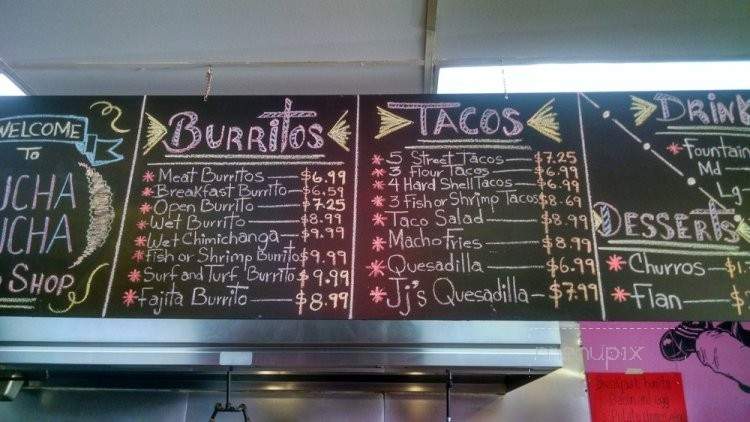 WELCOME
TO
UCHA
UCHA
SHOP
BURRITOS
Meat Burritos — $6.99
Breakfast Burrito — $6.59
Open Burrito — $7.25
Wet Burrito — $8.99
Wet Chimichanga — $9.99
Fish or Shrimp Burrito $9.99
Surf and Turf Burrito $9.99
Fajita Burrito — $8.99
TACOS
5 Street Tacos — $7.25
3 flour Tacos — $6.99
4 Hard Shell Tacos — $6.99
3 Fish or Shrimp Tacos $8.69
Taco Salad — $8.99
Macho Fries — $8.99
Quesadilla — $6.99
Jj's Quesadilla — $7.99
DRIN
Fountain
Md
Lg
DESSERTS
Churros — $1
Flan — $
menupix
Breakfast Burrito